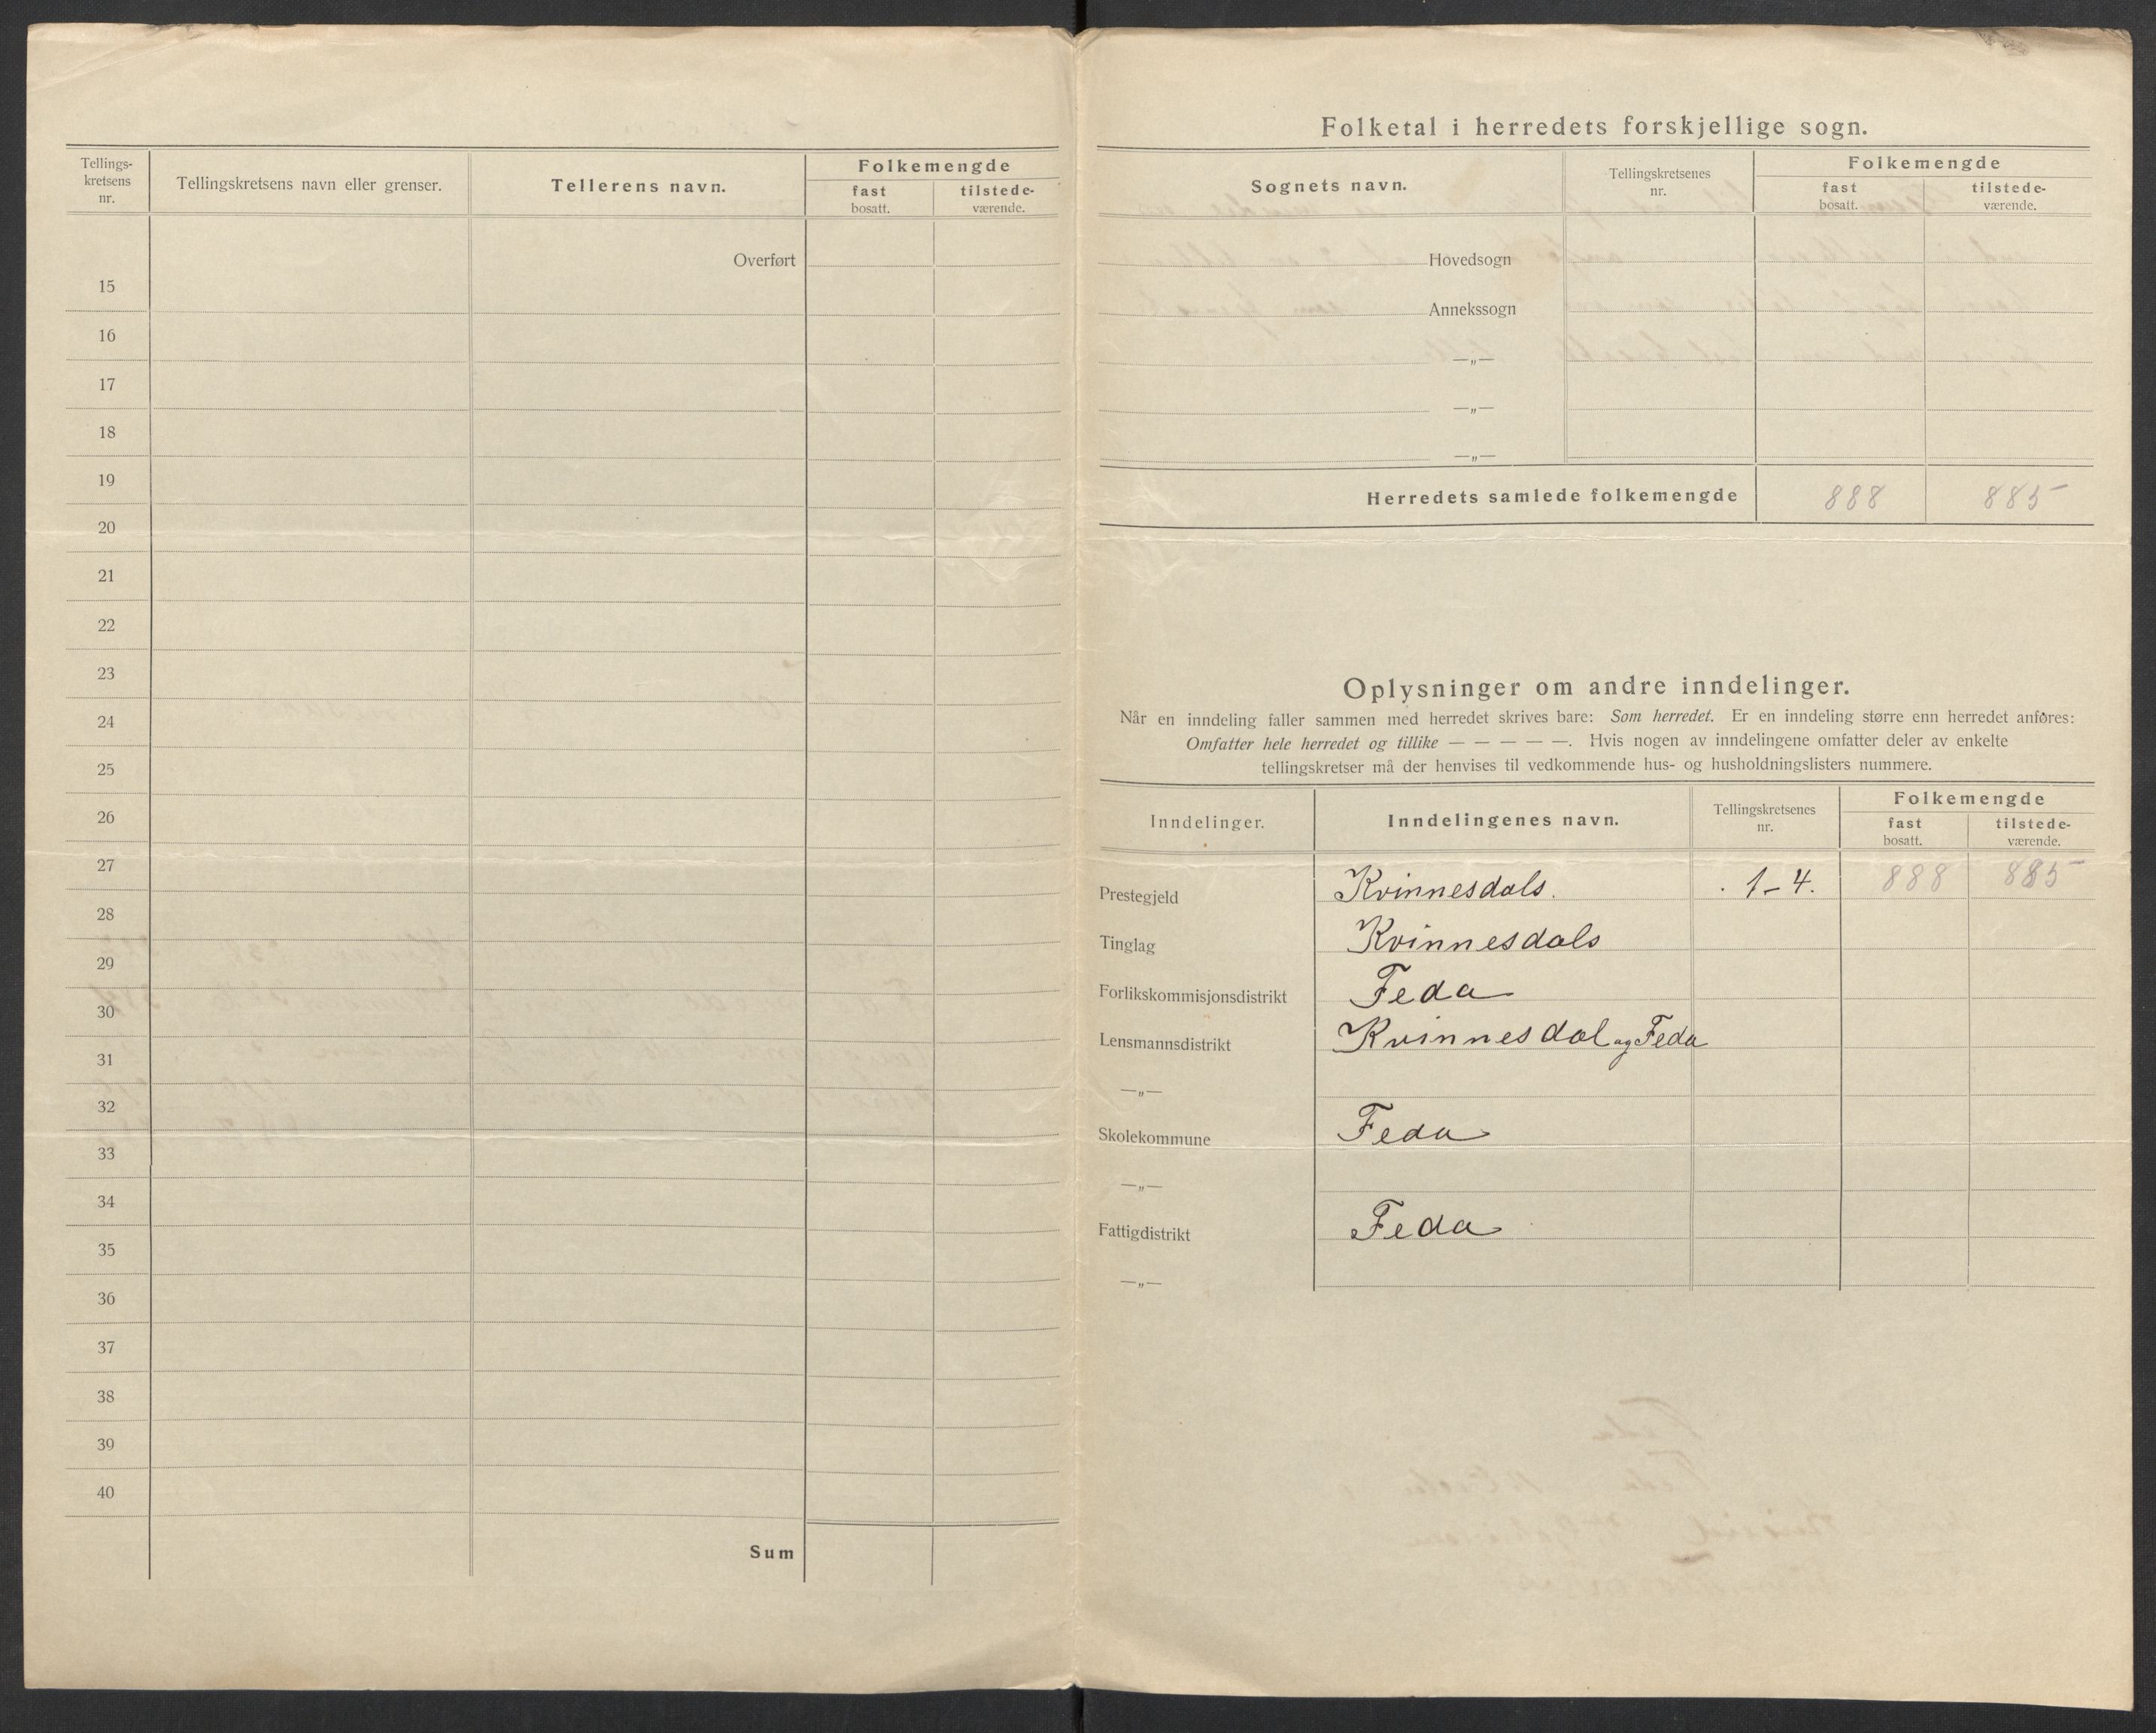 Tellings-
kretsens
nr.
Tellingskretsens navn eller grenser.
Tellerens navn.
Folkemengde
fast
bosatt.
tilstede-
værende.
Overført
15
16
17
18
19
20
21
22
23
24
25
26
27
28
29
30
31
32
33
34
35
36
37
38
39
40
Sum
Folketal i herredets forskjellige sogn.
Sognets navn.
Tellingskretsenes
nr.
Folkemengde
fast
bosatt.
tilstede-
værende.
Hovedsogn
Annekssogn
—„—
—„—
—„—
Herredets samlede folkemengde 888 885
Oplysninger om andre inndelinger.
Når en inndeling faller sammen med herredet skrives bare: Som herredet. Er en inndeling større enn herredet anføres:
Omfatter hele herredet og tillike — — — — —. Hvis nogen av inndelingene omfatter deler av enkelte
tellingskretser må der henvises til vedkommende hus- og husholdningslisters nummere.
Inndelinger.
Inndelingenes navn.
Tellingskretsenes
nr.
Folkemengde
fast
bosatt.
tilstede-
værende.
Prestegjeld Kvinnesdals. 1-4. 888 885
Tinglag Kvinnesdals
Forlikskommisjonsdistrikt Feda
Lensmannsdistrikt Kvinnesdal og Feda
—„—
Skolekommune Feda
—„—
Fattigdistrikt Feda
—„—